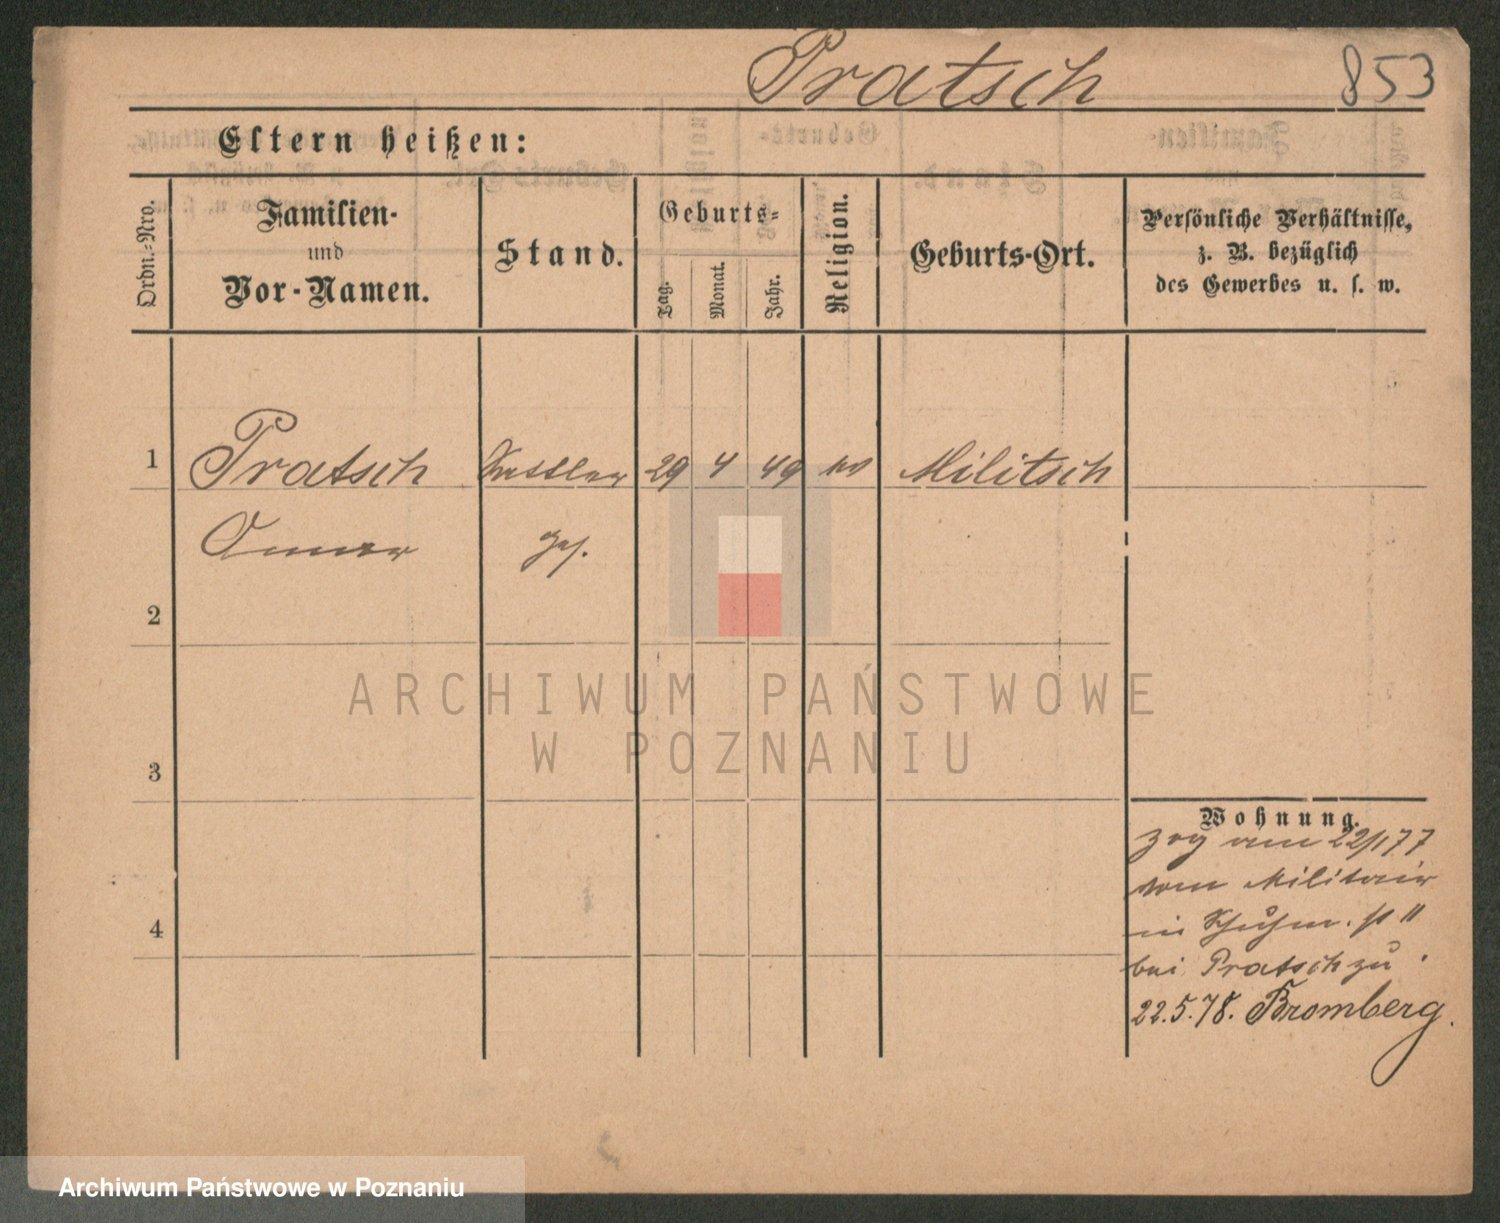 Pratsch 853
Eltern heißen:
Ordn.-Nro.
Familien-
und
Vor-Namen.
Stand.
Geburts-
Tag.
Monat.
Jahr.
Religion.
Geburts-Ort.
Persönliche Verhältnisse,
z. B. bezüglich
des Gewerbes u. s. w.
1 Pratsch Sattler 29 4 49 Militsch
Ges.
2
3
4
Wohnung.
zog am 22/1 77
vom Militair
in
bei Pratsch zu
22.5.78. Bromberg.
ARCHIWUM PAŃSTWOWE
W POZNANIU
Archiwum Państwowe w Poznaniu